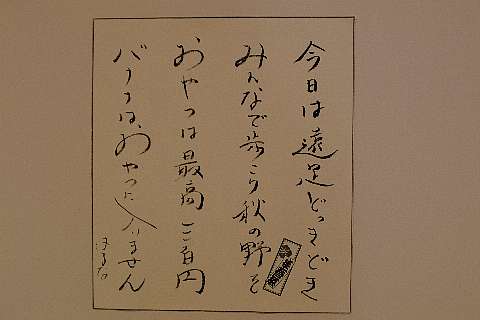 今日は遠足どっきどき
みんなで歩こう秋の野を
おやつは最高三百円
バナナは、おやつに入りません
はるな